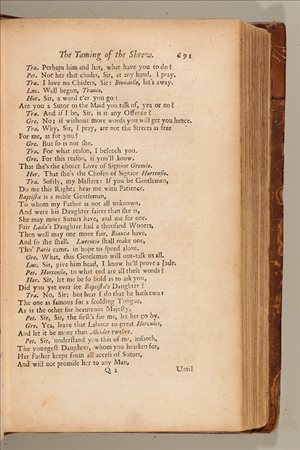 The Taming of the Shrew. 691
Tra. Perhaps him and her, what have you to do?
Pet. Not her that chides, Sir, at any hand, I pray.
Tra. I love no Chiders, Sir: Biondello, let's away.
Luc. Well begun, Tranio.
Hor. Sir, a word e'er you go:
Are you a Sutor to the Maid you talk of, yea or no?
Tra. And if I be, Sir, is it any Offence?
Gre. No; if without more words you will get you hence.
Tra. Why, Sir, I pray, are not the Streets as free
For me, as for you?
Gre. But so is not she.
Tra. For what reason, I beseech you.
Gre. For this reason, if you'll know.
That she's the choice Love of Signior Gremio.
Hor. That she's the Chosen of Signior Hortensio.
Tra. Softly, my Masters: If you be Gentlemen,
Do me this Right; hear me with Patience.
Baptista is a noble Gentleman,
To whom my Father is not all unknown,
And were his Daughter fairer than she is,
She may more Sutors have, and me for one.
Fair Leda's Daughter had a thousand Wooers,
Then well may one more fair, Bianca have,
And so she shall. Lucentio shall make one,
Tho' Paris came, in hope to speed alone.
Gre. What, this Gentleman will out-talk us all.
Luc. Sir, give him head, I know he'll prove a Jade.
Pet. Hortensio, to what end are all these words?
Hor. Sir, let me be so bold as to ask you,
Did you yet ever see Baptista's Daughter?
Tra. No, Sir; but hear I do that he hath two:
The one as famous for a scolding Tongue,
As is the other for beauteous Modesty.
Pet. Sir, Sir, the first's for me, let her go by.
Gre. Yea, leave that Labour to great Hercules,
And let it be more than Alcides twelve.
Pet. Sir, understand you this of me, insooth,
The youngest Daughter, whom you hearken for,
Her Father keeps from all access of Sutors,
And will not promise her to any Man,
Q 2 Until